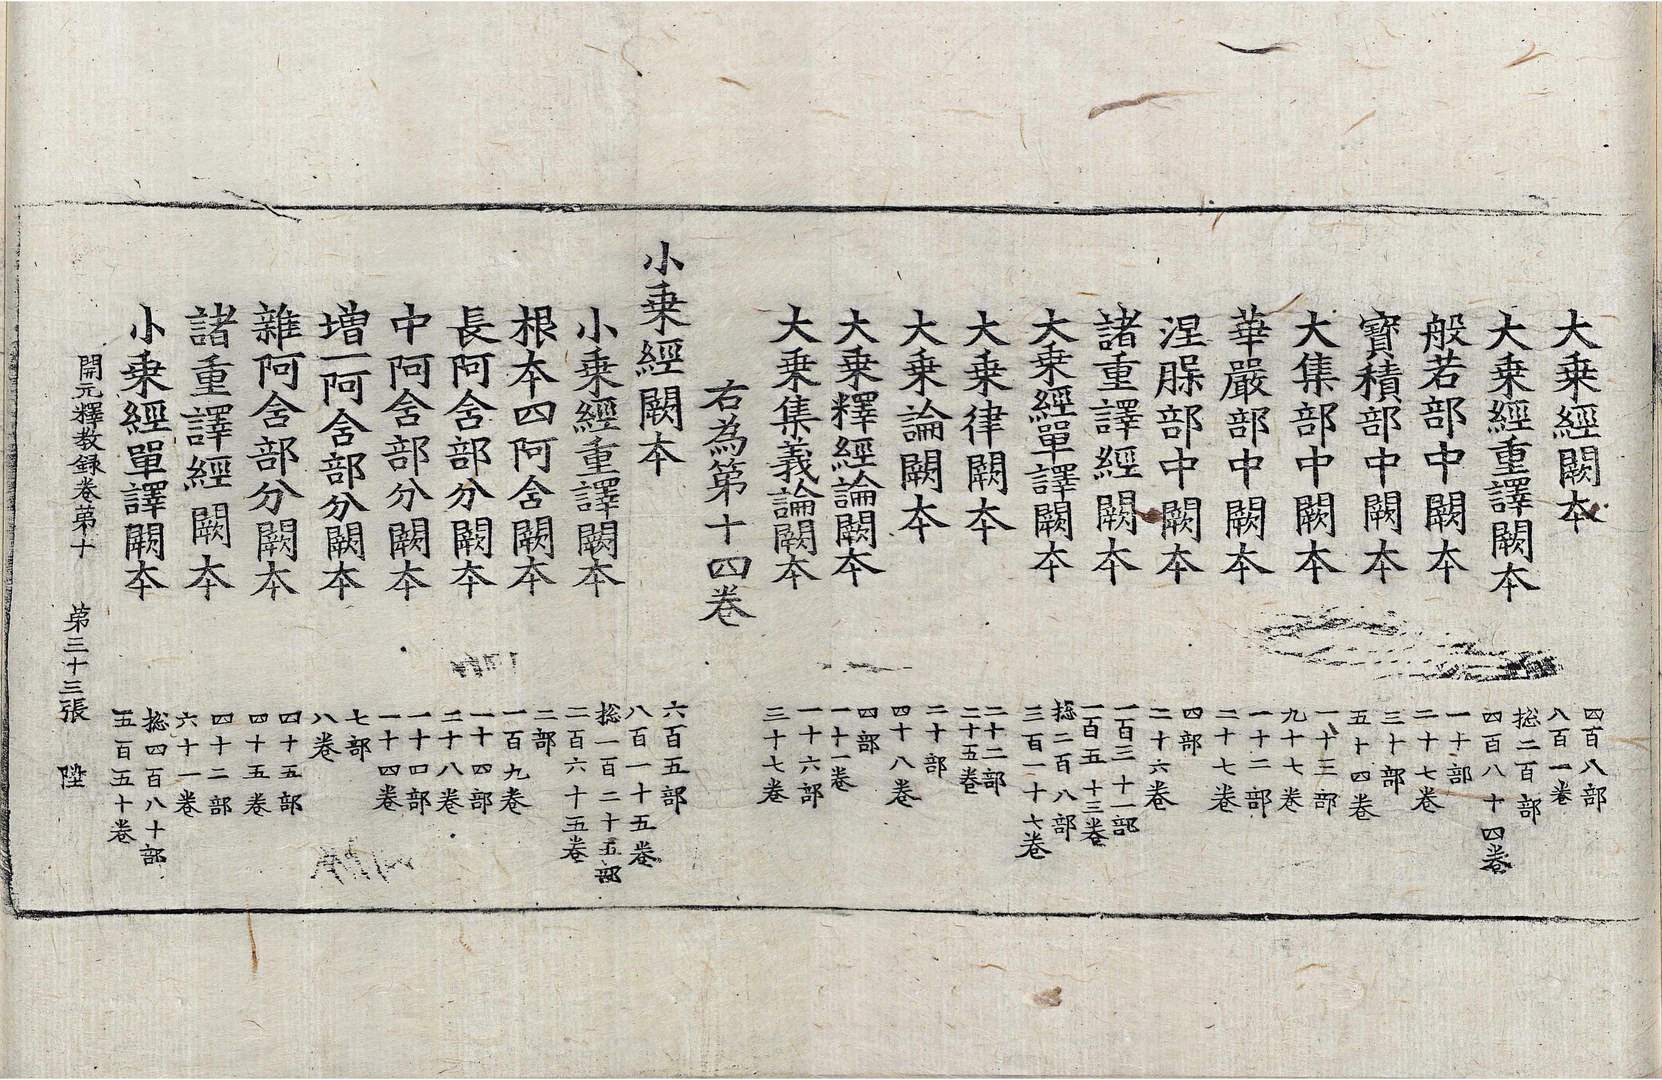 大乗經闕本 四百八部 八百一卷
大乗經重譯闕本 揔二百部 四百八十四卷
般若部中闕本 一十部 二十七卷
寶積部中闕本 三十部 五十四卷
大集部中闕本 一十三部 九十七卷
華嚴部中闕本 一十二部 二十七卷
涅槃部中闕本 四部 二十六卷
諸重譯經闕本 一百三十一部 一百五十三卷
大乗經單譯闕本 揔二百八部 三百一十七卷
大乗律闕本 二十二部 二十五卷
大乗論闕本 二十部 四十八卷
大乗釋經論闕本 四部 一十一卷
大乗集義論闕本 一十六部 三十七卷
右為第十四卷
小乗經闕本 六百五部 八百一十五卷
小乗經重譯闕本 揔一百二十五部 二百六十五卷
根本四阿含闕本 二部 一百九卷
長阿含部分闕本 一十四部 二十八卷
中阿含部分闕本 一十四部 一十四卷
増一阿含部分闕本 七部 八卷
雜阿含部分闕本 四十五部 四十五卷
諸重譯經闕本 四十二部 六十一卷
小乗經單譯闕本 揔四百八十部 五百五十卷
開元釋教録卷第十 第三十三張 陞